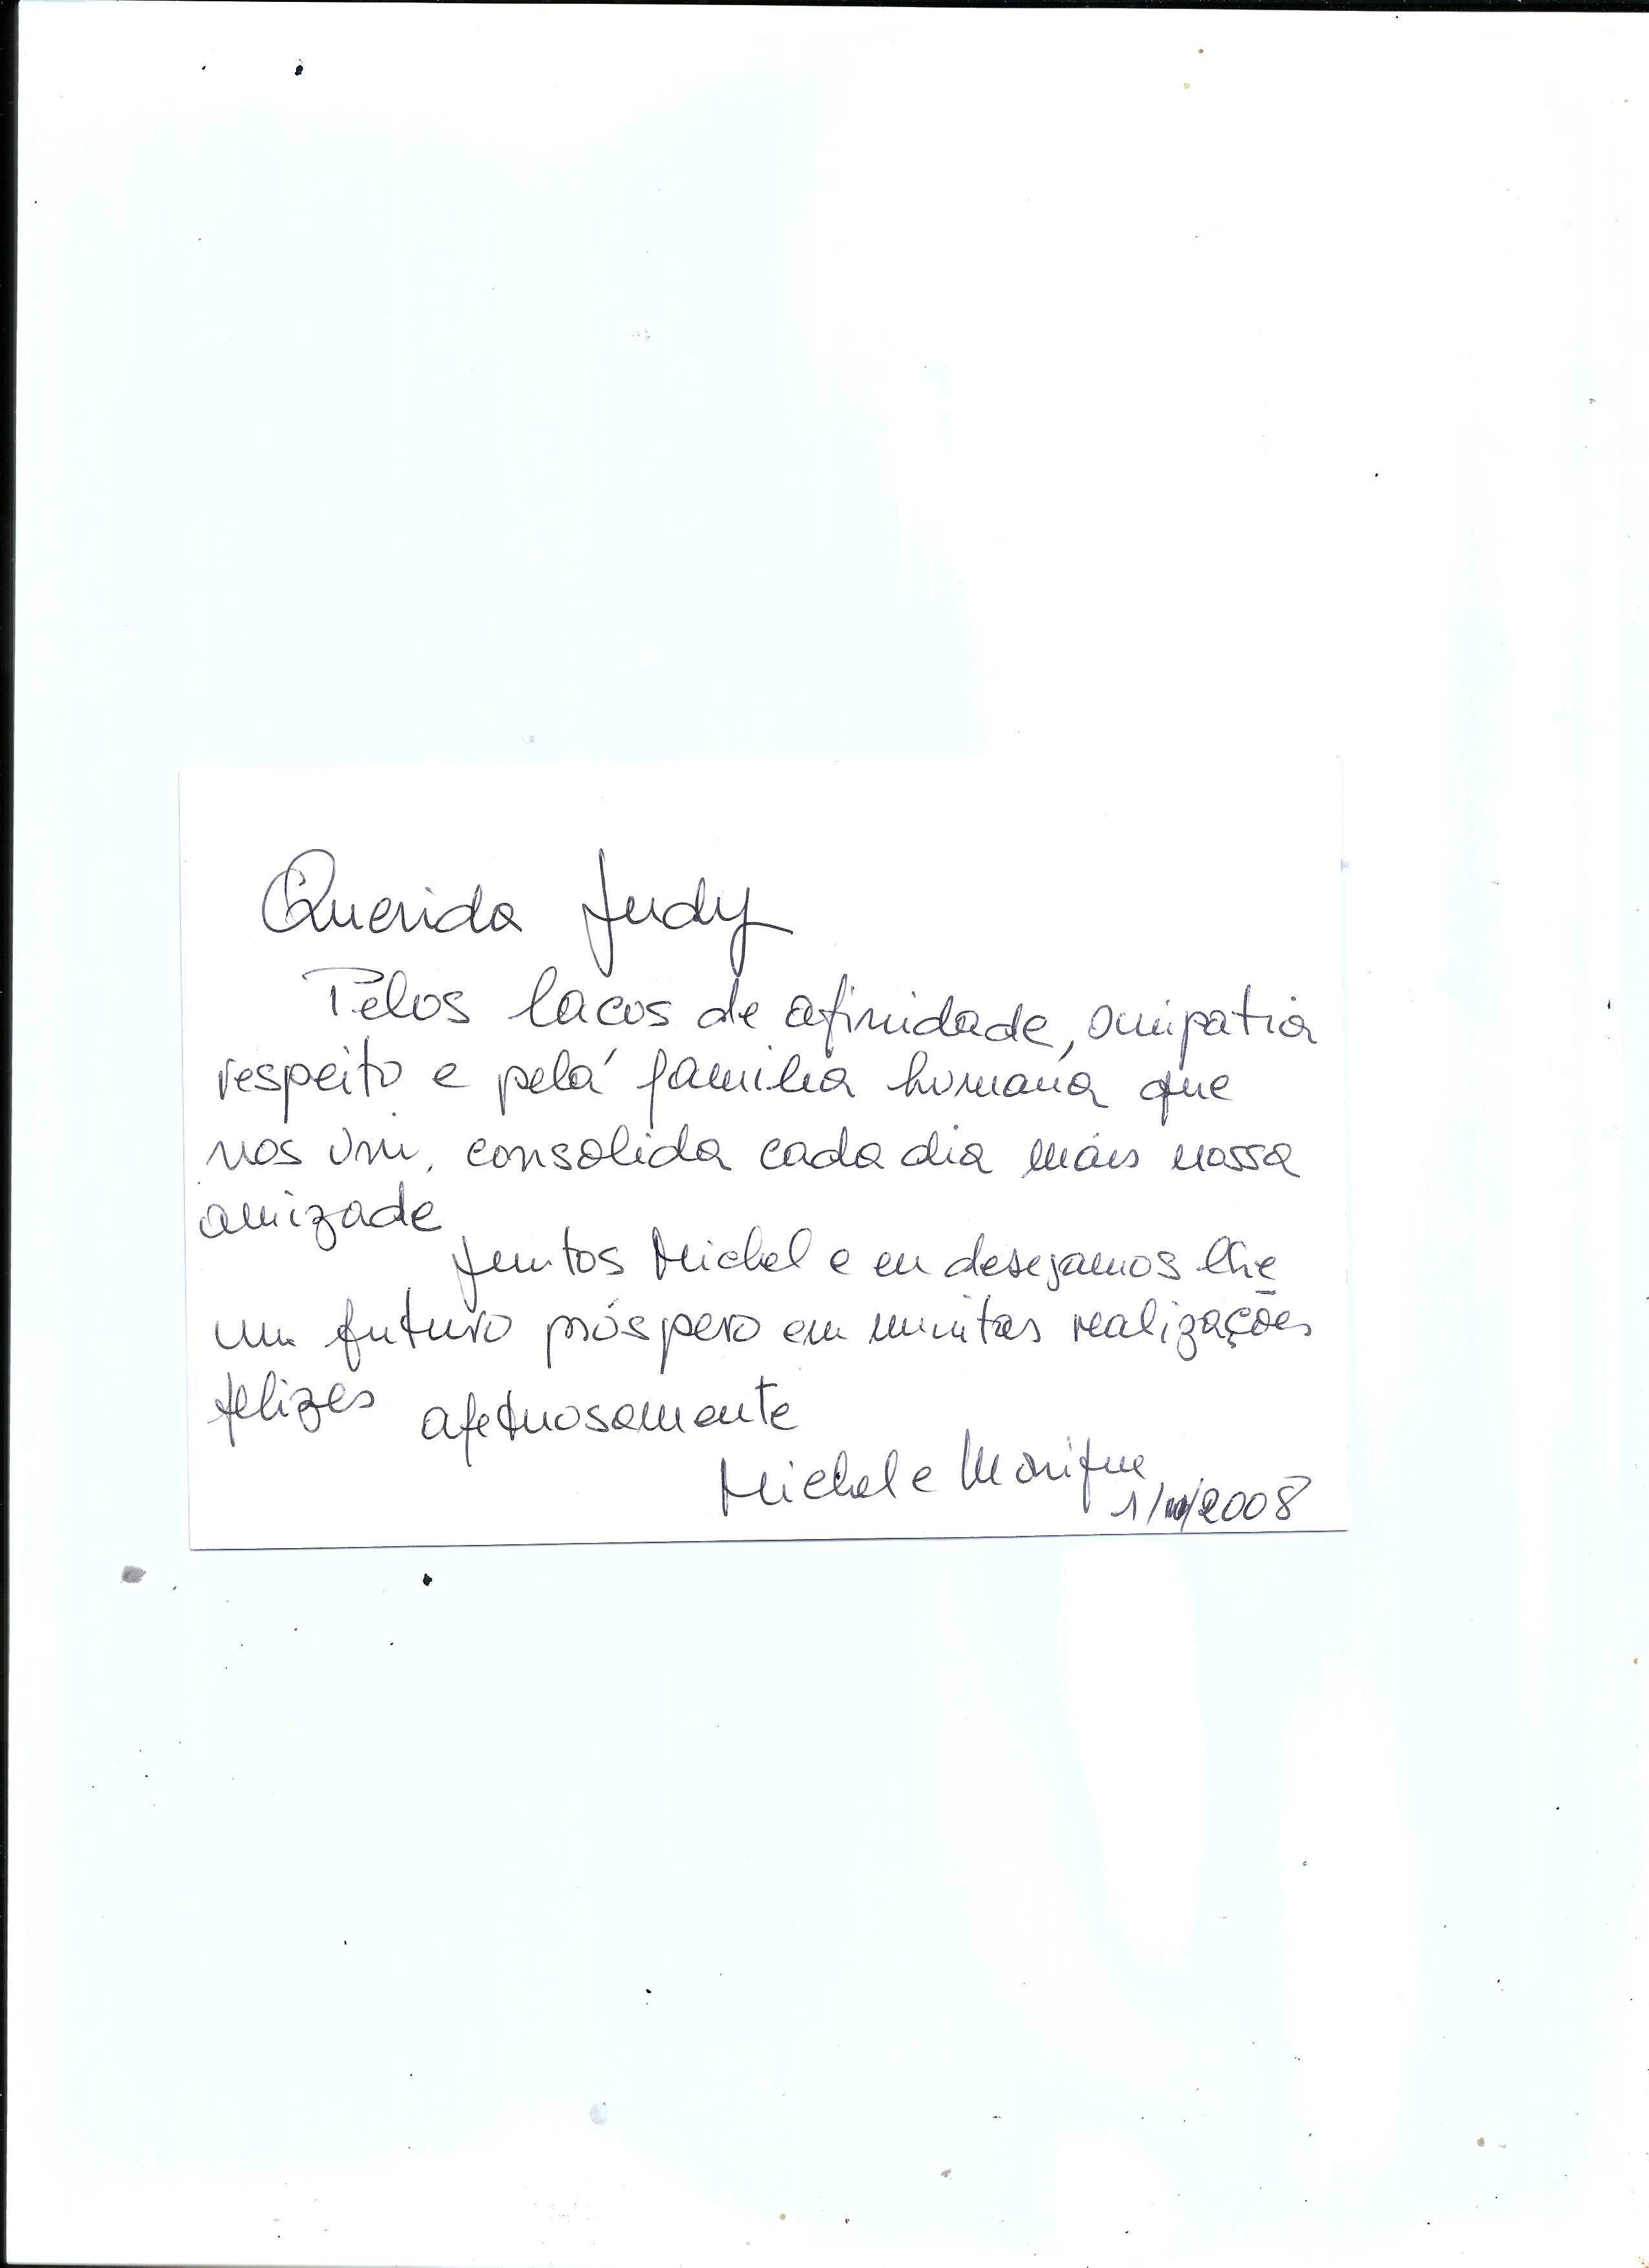 Querida Judy
Pelos lacos de afinidade, simpatia
respeito e pela familia humana que
nos uni, consolida cada dia mais nossa
amizade
Juntos Michel e eu desejamos lhe
um futuro próspero em muitas realizações
felizes afetuosamente
Michel e Monique
1/ /2008